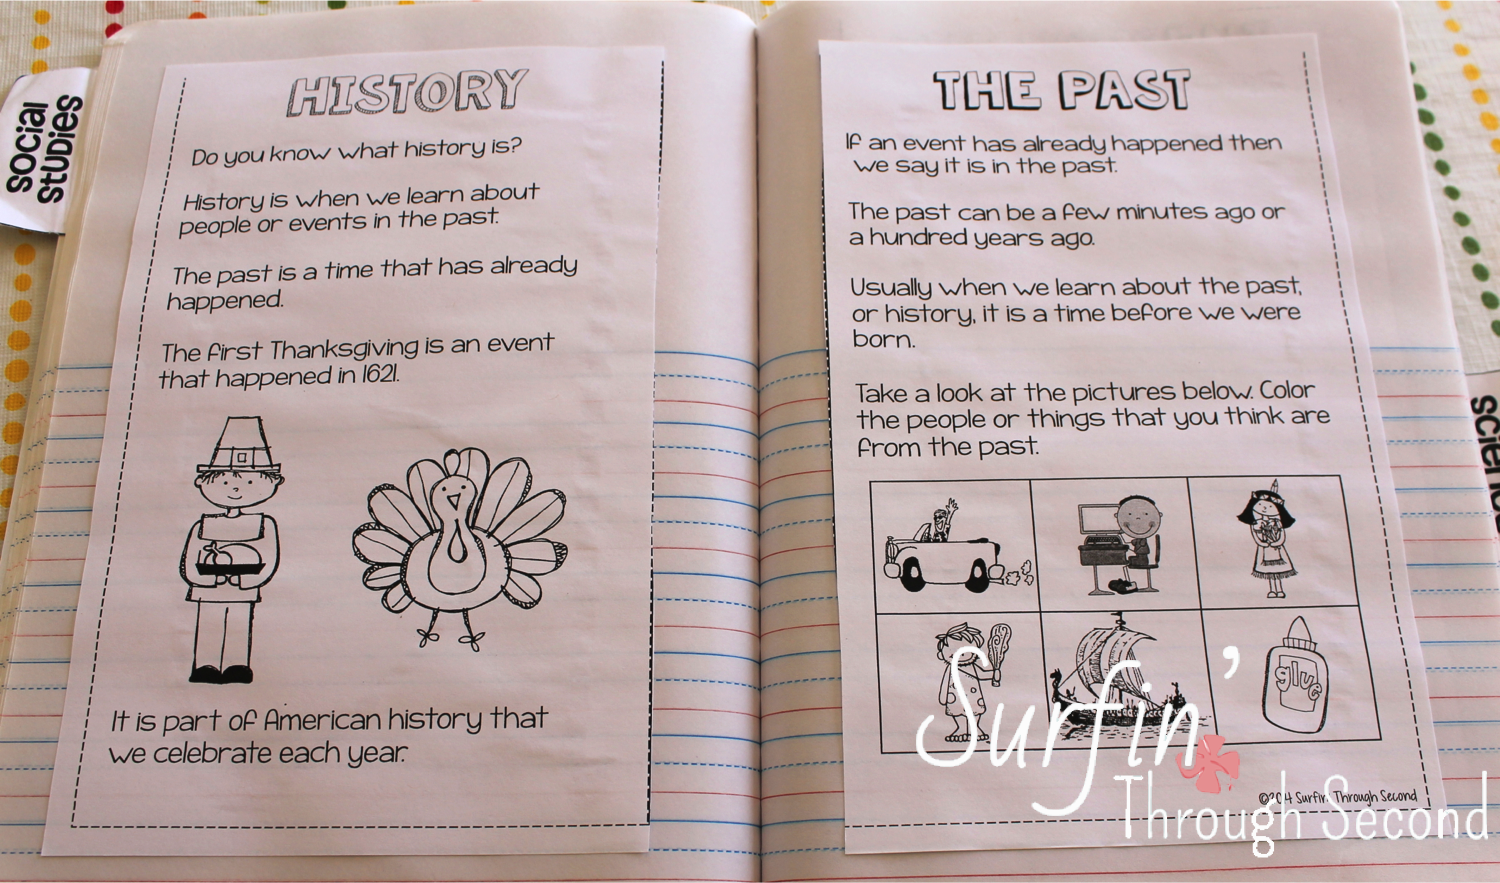 social
studies
HISTORY
Do you know what history is?
History is when we learn about
people or events in the past.
The past is a time that has already
happened.
The first Thanksgiving is an event
that happened in 1621.
It is part of American history that
we celebrate each year.
THE PAST
If an event has already happened then
we say it is in the past.
The past can be a few minutes ago or
a hundred years ago.
Usually when we learn about the past,
or history, it is a time before we were
born.
Take a look at the pictures below. Color
the people or things that you think are
from the past.
glue
©2014 Surfin' Through Second
Surfin'
Through Second